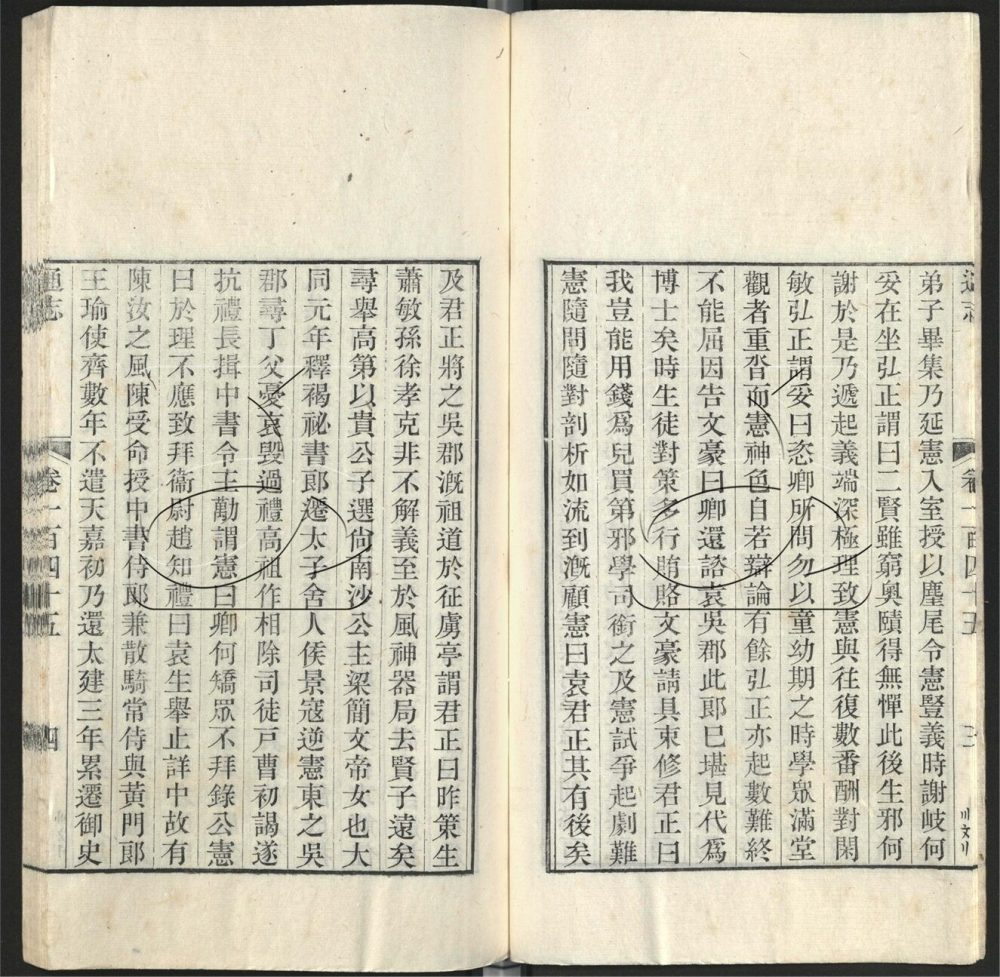 弟子畢集乃延憲入室授以麈尾令憲豎義時謝岐何
妥在坐弘正謂曰二賢雖窮奧賾得無憚此後生邪何
謝於是乃遞起義端深極理致憲與往復數番酬對閑
敏弘正謂妥曰恣卿所問勿以童幼期之時學眾滿堂
觀者重沓而憲神色自若辯論有餘弘正亦起數難終
不能屈因告文豪曰卿還諮袁吳郡此郎已堪見代爲
博士矣時生徒對策多行賄賂文豪請具束修君正曰
我豈能用錢爲兒買第邪學司銜之及憲試爭起劇難
憲隨問隨對剖析如流到溉顧憲曰袁君正其有後矣
及君正將之吳郡溉祖道於征虜亭謂君正曰昨策生
蕭敏孫徐孝克非不解義至於風神器局去賢子遠矣
尋舉高第以貴公子選尙南沙公主梁簡文帝女也大
同元年釋褐祕書郎遷太子舍人侯景寇逆憲東之吳
郡尋丁父憂哀毀過禮高祖作相除司徒戸曹初謁遂
抗禮長揖中書令王勱謂憲曰卿何矯眾不拜錄公憲
曰於理不應致拜衞尉趙知禮曰袁生舉止詳中故有
陳汝之風陳受命授中書侍郎兼散騎常侍與黃門郎
王瑜使齊數年不遣天嘉初乃還太建三年累遷御史
通志
卷一百四十五
四